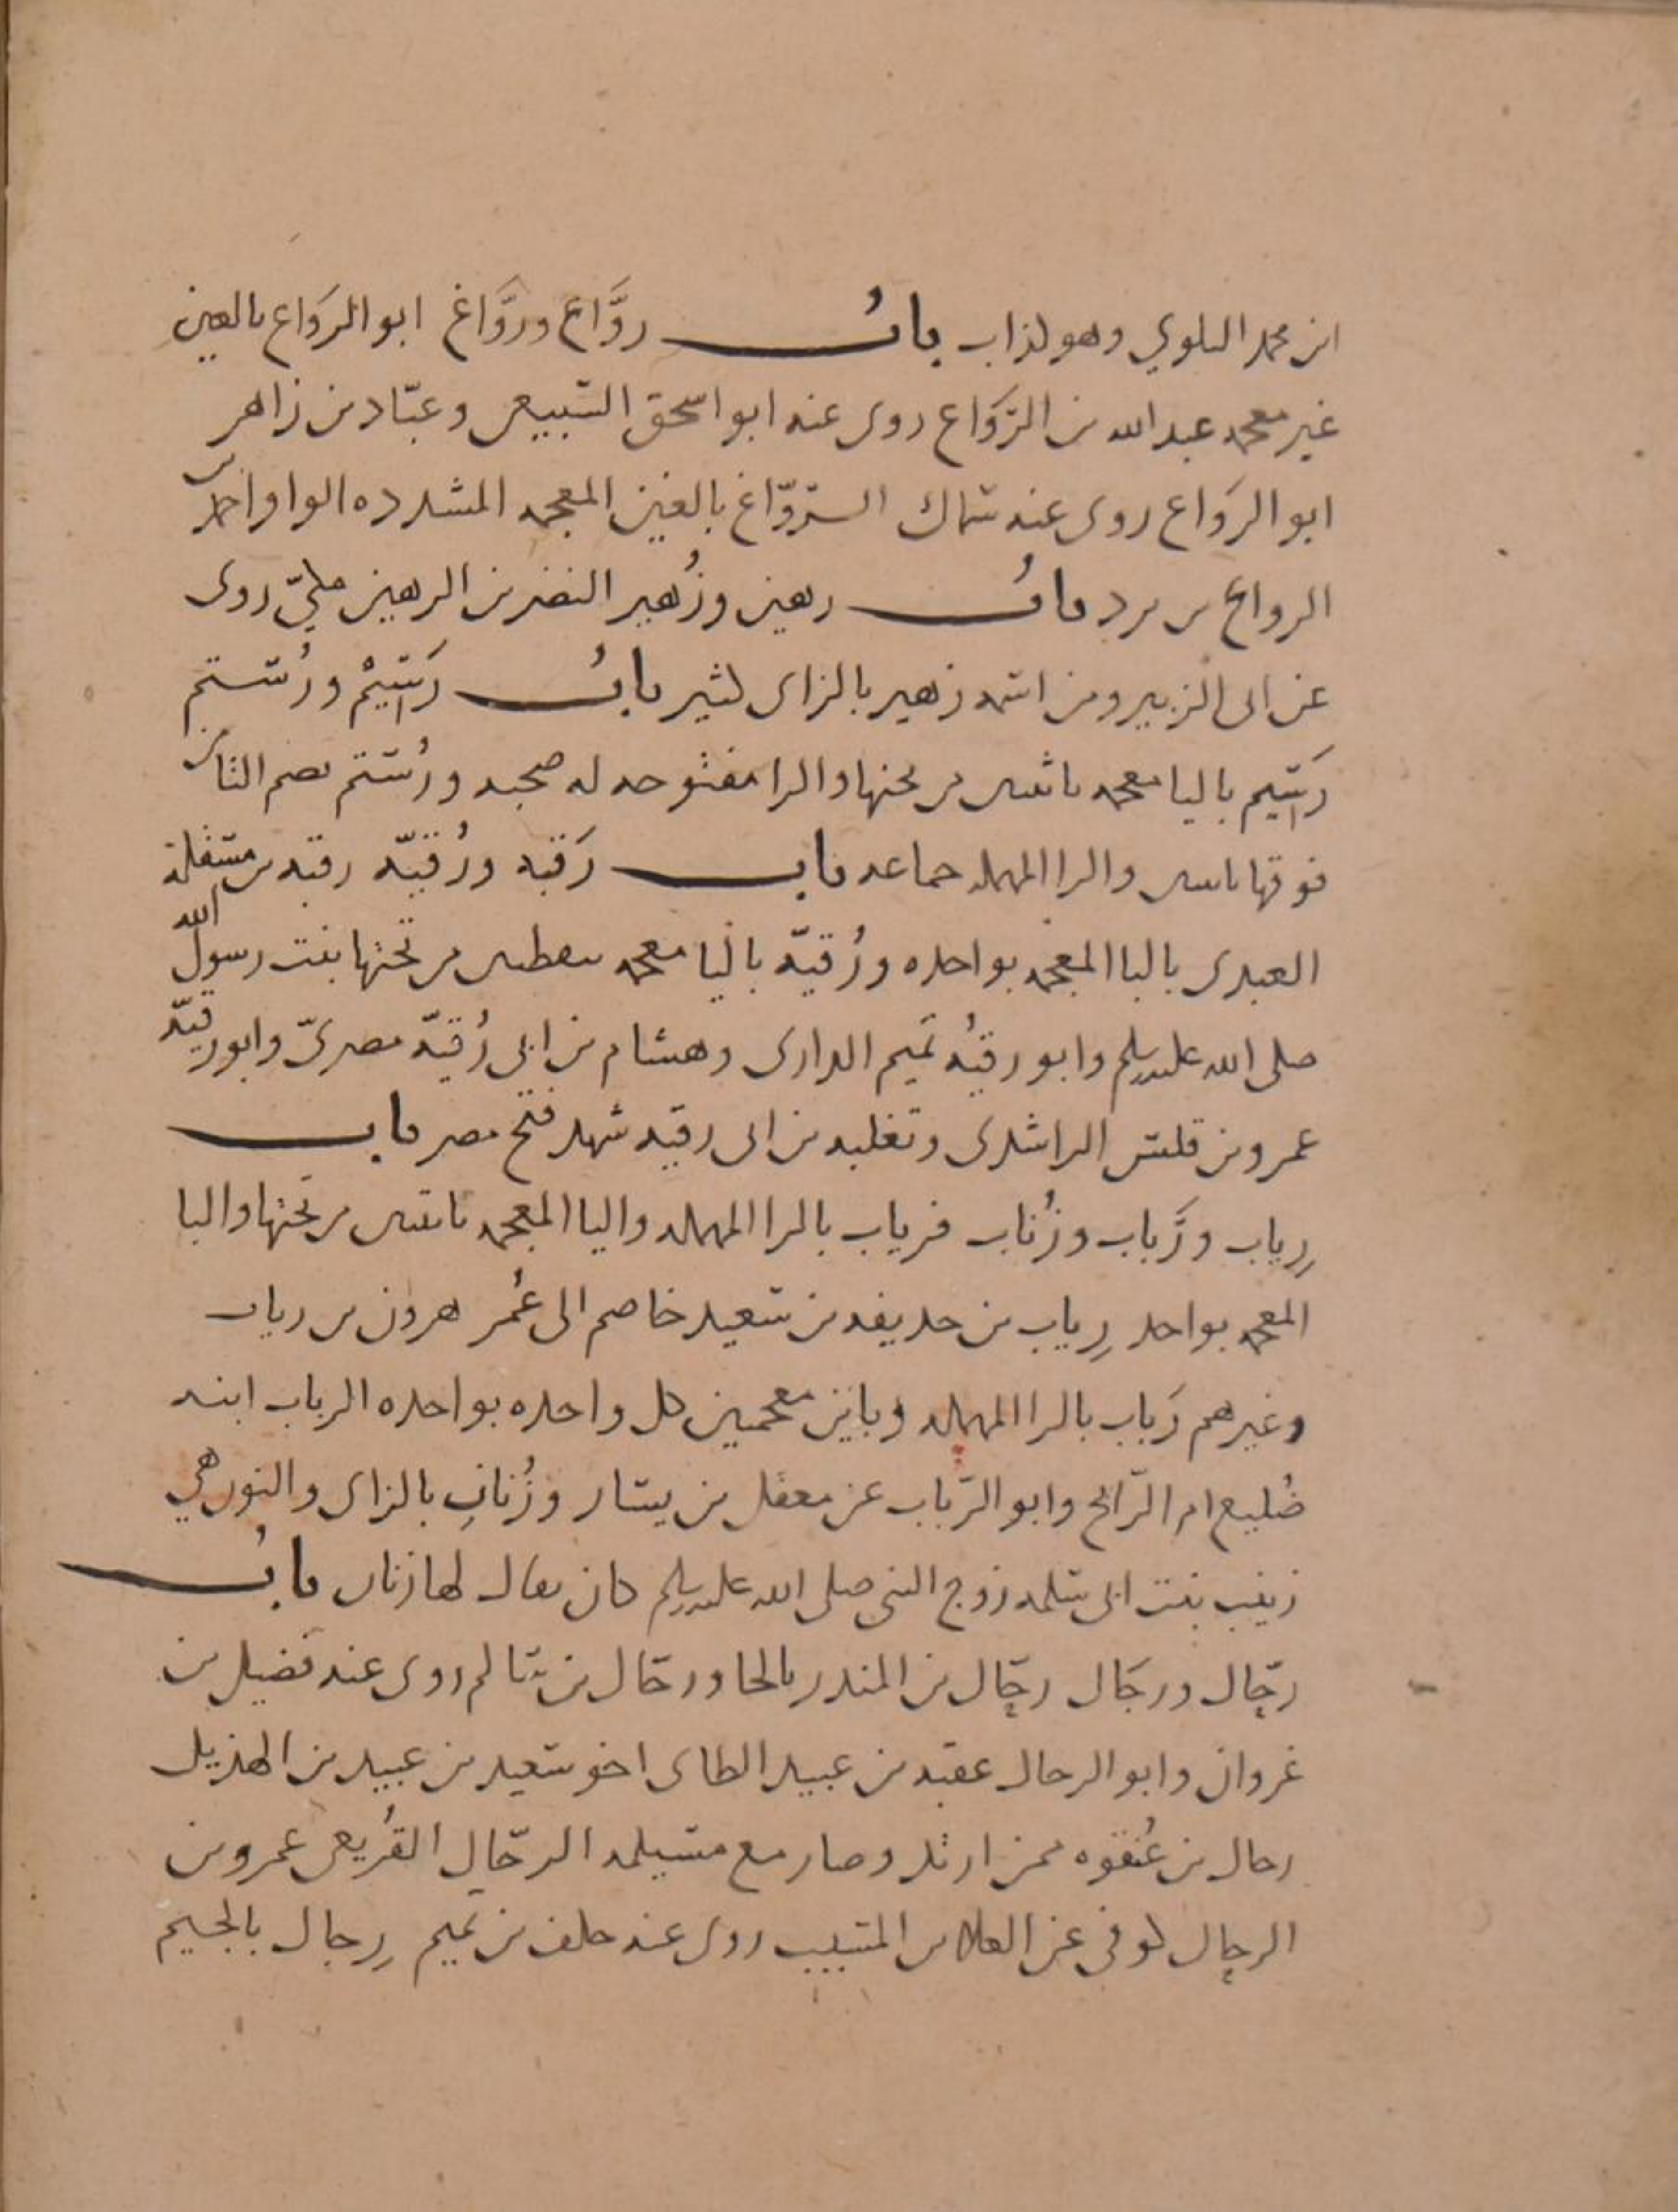 ابن محمد البلوي وهو لذاب باب روَّاع وروَّاغ ابو الروَاع بالعين
غير معجمه عبد الله بن الروَاع روى عنه ابو اسحق السبيعى وعبّاد بن زاهر
ابو الروَاع روى عنه سماك الروّاغ بالغين المعجمه المشدده الواو احمد بن
الرواغ بن برد باب رهين وزُهير النضر بن الرهين مكيّ روى
عن ابى الزبير ومن اسمه زهير بالزاى كثير باب رَيسيْم ورُستم
رَيسيم باليا معجمه باثنين من تحتها والرا مفتوحه له صحبه ورُستم بضم التا من
فوقها باثنين والرا المهمله جماعه باب رَقبه ورُقيّه رقبه بن مسقلة
العبدى بالبا المعجمه بواحده ورُقيّه باليا معجمه بنقطتين من تحتها بنت رسول الله
صلى الله عليه وسلم وابو رقيُه تميم الدارى وهشام بن ابى رُقيّه مصرىّ وابو رقيّه
عمرو بن قلس الراشدى وتغلبه بن ابى رقيه شهد فتح مصر باب
رِياب ورَباب وزُناب فرياب بالرا المهمله واليا المعجمه باثنين من تحتها والبا
المعجمه بواحد رِياب بن حذيفه بن سعيد خاصم الى عُمر هرون بن رياب
وغيرهم رَباب بالرا المهمله وبايين معجمين كل واحده بواحده الرباب ابنه
ضُليع ام الرّائح وابو الرّباب عن معقل بن يسار وزُنابِ بالزاى والنور هي
زينب بنت ابى سلمه زوج النبى صلى الله عليه وسلم كان يقال لها زناب باب
رحّال ورجَال رحّال بن المنذر بالحا ورحّال بن سالم روى عنه فضيل بن
غروان وابو الرحال عقبه بن عبيد الطاى اخو سعيد بن عبيد بن الهذيل
رحال بن عُنفوه ممن ارتد وصار مع مسيلمه الرحّال القُريعى عمرو بن
الرحال لوفى عن العلا بن المسيب روى عنه خلف بن تميم رِجال بالجيم